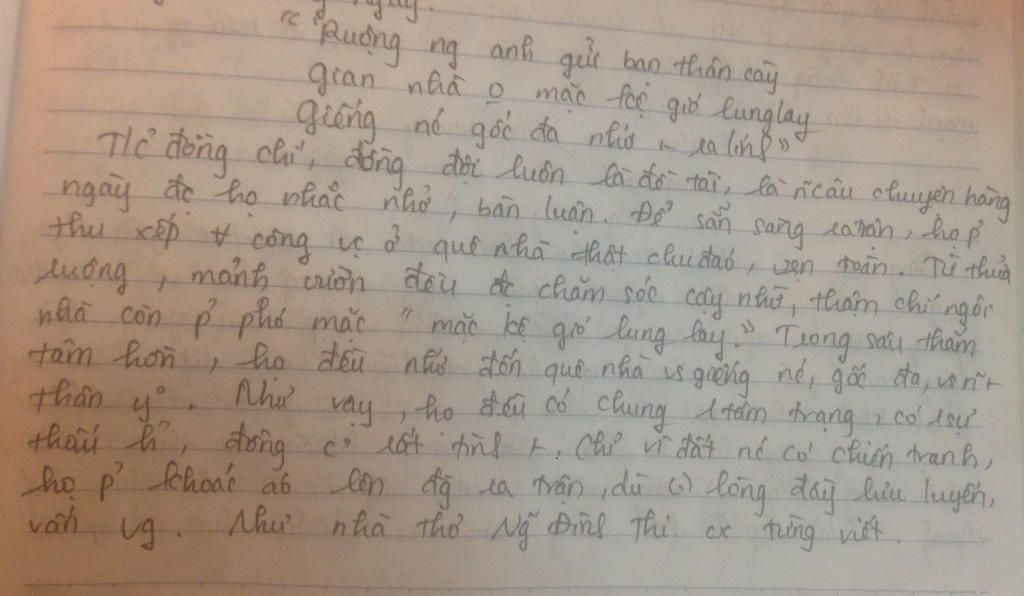 "Ruộng ng anh gửi bạn thân cày
gian nhà o mặc kệ gió lung lay
giếng nc gốc đa nhớ ra lính"
T/c đồng chí, đồng đội luôn là đề tài, là câu chuyện hàng
ngày đc họ nhắc nhở, bàn luận. Để sẵn sàng ra trận, họ p
thu xếp ∀ công vc ở quê nhà thật chu đáo, vẹn toàn. Từ thửa
ruộng, mảnh vườn đều đc chăm sóc cậy nhờ, thậm chí ngôi
nhà còn p phó mặc "mặc kệ gió lung lay." Trong sâu thẳm
tâm hồn, họ đều nhớ đến quê nhà vs giếng nc, gốc đa, vs
thân y. Như vậy, họ đều có chung 1 tâm trạng, có 1 sự
thấu h', đồng c' rất. Chỉ vì đất nc có chiến tranh,
họ p khoác áo lên đg ra trận, dù (.) lòng đầy lưu luyến,
vấn vg. Như nhà thơ Ng Đình Thi cx từng viết.